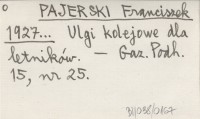 PAJERSKI Franciszek
1927... Ulgi kolejowe dla
letników. — Gaz. Podh.
15, nr 25.